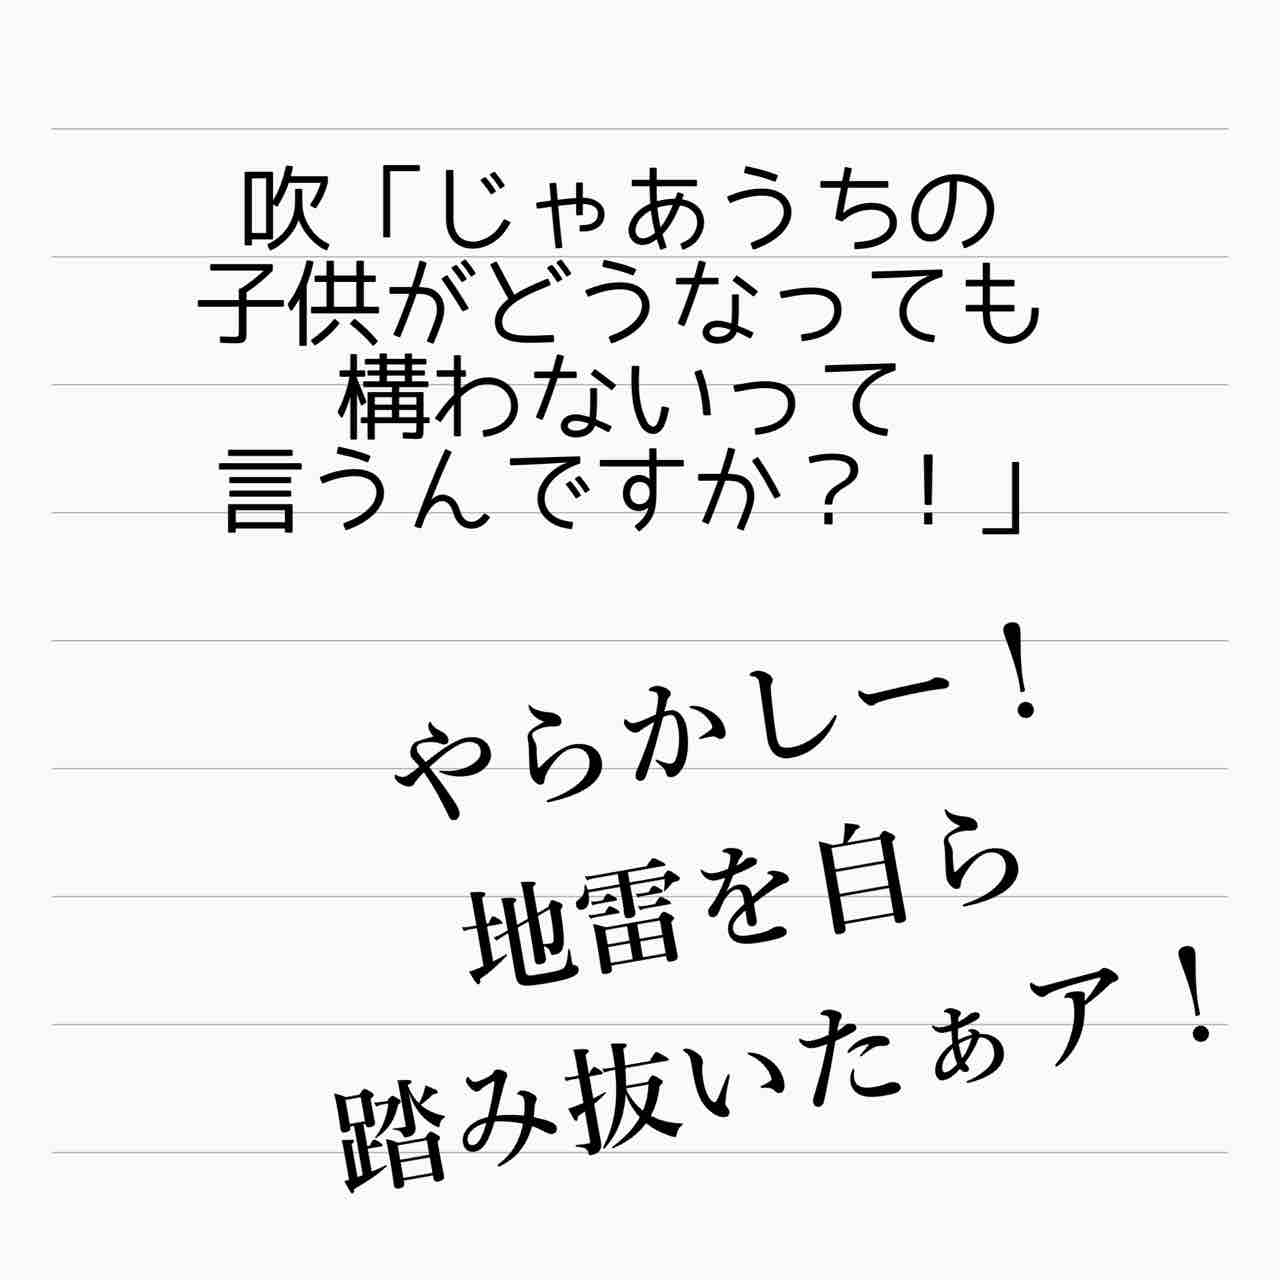 吹「じゃあうちの
子供がどうなっても
構わないって
言うんですか？！」
やらかしー！
地雷を自ら
踏み抜いたぁア！